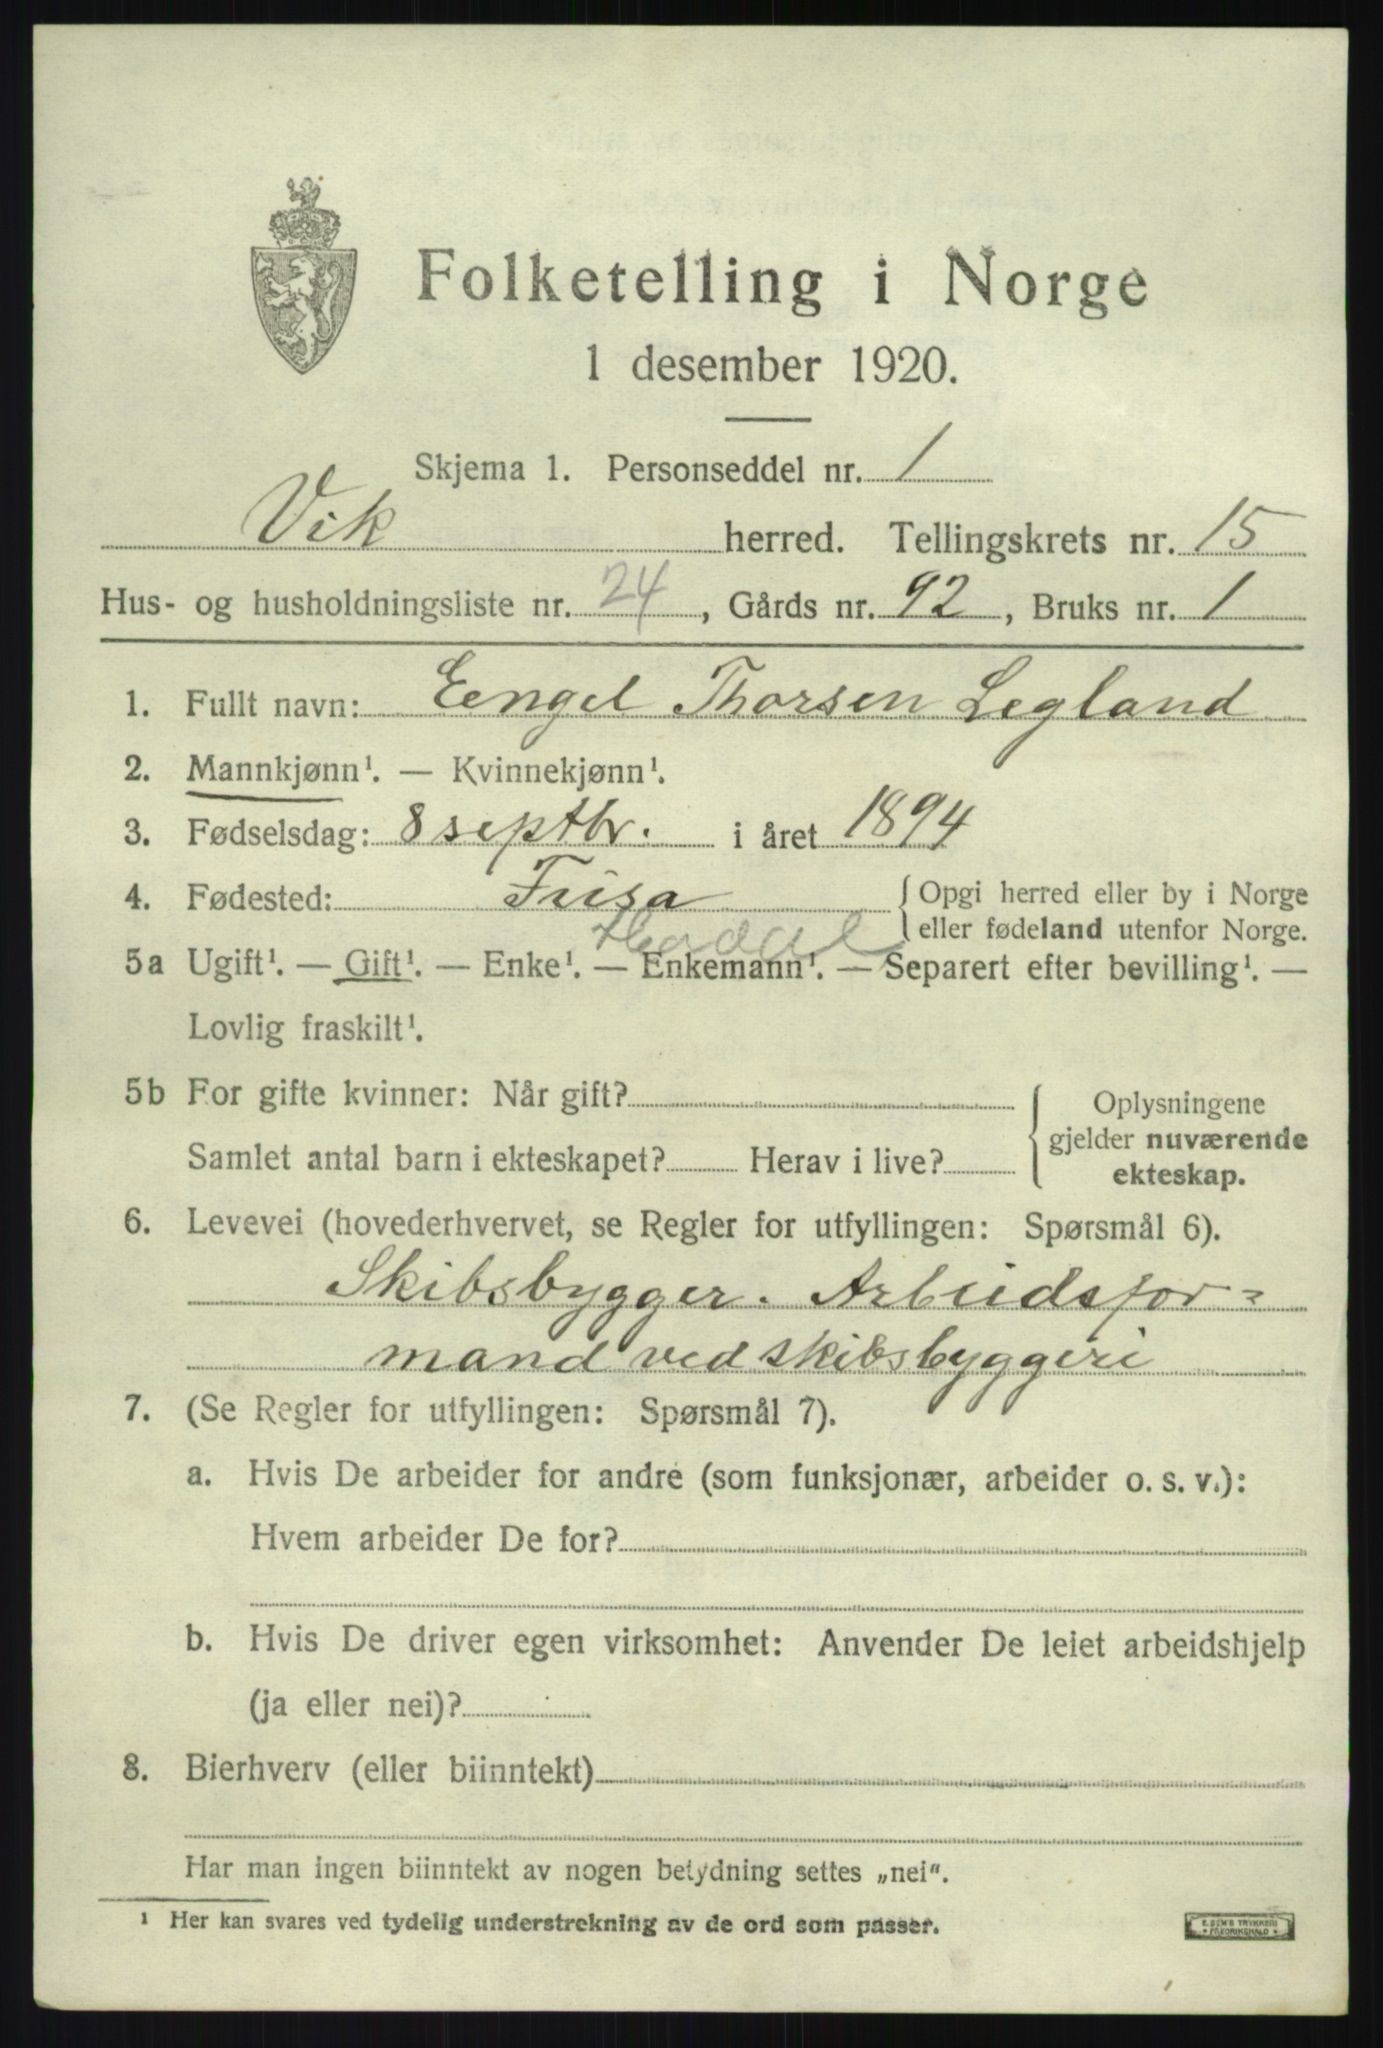 Folketelling i Norge
1 desember 1920.
Skjema 1. Personseddel nr. 1
Vik herred. Tellingskrets nr. 15
Hus- og husholdningsliste nr. 24, Gårds nr. 92, Bruks nr. 1
1. Fullt navn: Eengel Thorsen Legland
2. Mannkjønn¹. — Kvinnekjønn¹.
3. Fødselsdag: 8 septbr. i året 1894
4. Fødested: Fusa { Opgi herred eller by i Norge
eller fødeland utenfor Norge.
5a Ugift¹. — Gift¹. — Enke¹. — Enkemann¹. — Separert efter bevilling¹. —
Lovlig fraskilt¹.
5b For gifte kvinner: Når gift? { Oplysningene
gjelder nuværende
Samlet antal barn i ekteskapet? Herav i live? ekteskap.
6. Levevei (hovederhvervet, se Regler for utfyllingen: Spørsmål 6).
Skibsbygger. Arbeidsfor=
mand ved skibsbyggeri
7. (Se Regler for utfyllingen: Spørsmål 7).
a. Hvis De arbeider for andre (som funksjonær, arbeider o. s. v.):
Hvem arbeider De for?
b. Hvis De driver egen virksomhet: Anvender De leiet arbeidshjelp
(ja eller nei)?
8. Bierhverv (eller biinntekt)
Har man ingen biinntekt av nogen betydning settes „nei“.
¹ Her kan svares ved tydelig understrekning av de ord som passer.